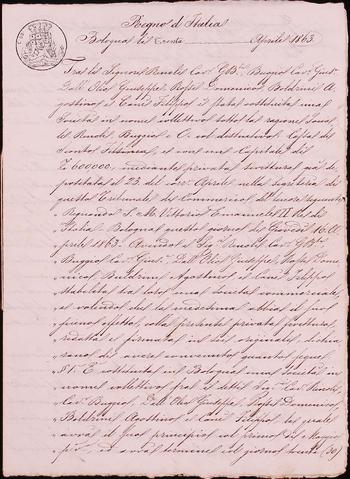 Regno d'Italia
Bologna li Trenta Aprile 1863.
Tra li Signori Cav. G. B. Cav.
Dall' Olio Giuseppe, Domenico, Boldrini A-
gostino e Filippo è stata costituita una
Società in nome collettivo sotto la ragione Sociale
di e C. col
con un Capitale di
600000, mediante privata scrittura de-
positata il 23 del corr. Aprile nella segreteria di
questo Tribunale di Commercio del tenore seguente
"Regnando S. M. Vittorio Emanuele II Re di
"Italia. Bologna questo giorno di Giovedì 16 A-
"prile 1863. Avendo li Sig.
" Dall' Olio Giuseppe, Dome-
"nico Boldrini Agostino e Filippo
"stabilito tra loro una Società commerciale,
"e volendo che la medesima abbia il suo
"pieno effetto, colla presente privata scrittura,
"redatta e firmata in sei originali, dichia-
"rano di avere convenuto quanto segue
"§ 1. È costituita in Bologna una Società in
"nome collettivo fra li detti Sig. Cav.
"Cav. Dall' Olio Giuseppe, Domenico,
"Boldrini Agostino e Filippo, la quale
"avrà il suo principio col primo di Maggio
" ed avrà termine il giorno trenta (30)